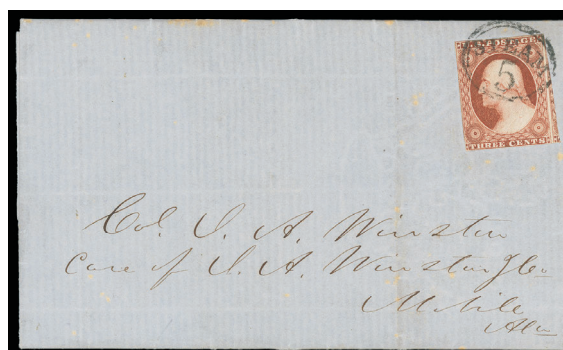 STEAM
5
THREE CENTS
Col. J. A. Winston
Care of J. A. Winston & Co
Mobile
Ala